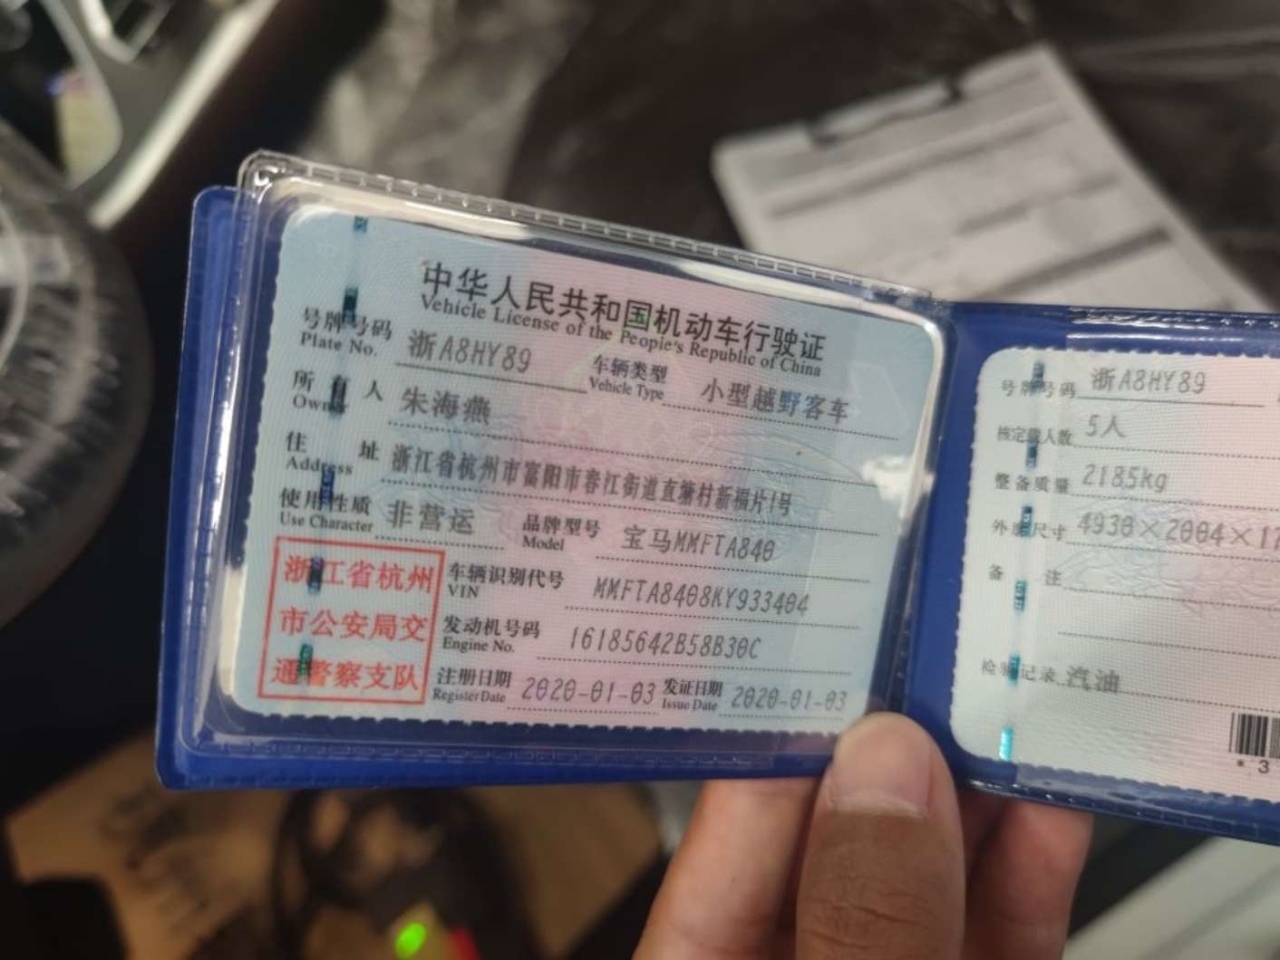 中华人民共和国机动车行驶证
Vehicle License of the People's Republic of China
号牌号码 浙A8HY89 车辆类型 小型越野客车
Plate No. Vehicle Type
所有人 朱海燕
Owner
住址 浙江省杭州市富阳市春江街道直塘村新福片1号
Address
使用性质 非营运 品牌型号 宝马MMFTA840
Use Character Model
浙江省杭州
市公安局交
通警察支队
车辆识别代号 MMFTA8408KY933404
VIN
发动机号码 16185642B58B30C
Engine No.
注册日期 2020-01-03 发证日期 2020-01-03
Register Date Issue Date
号牌号码 浙A8HY89
核定载人数 5人
整备质量 2185kg
外廓尺寸 4930×2004×17
备注
检验记录 汽油
*3